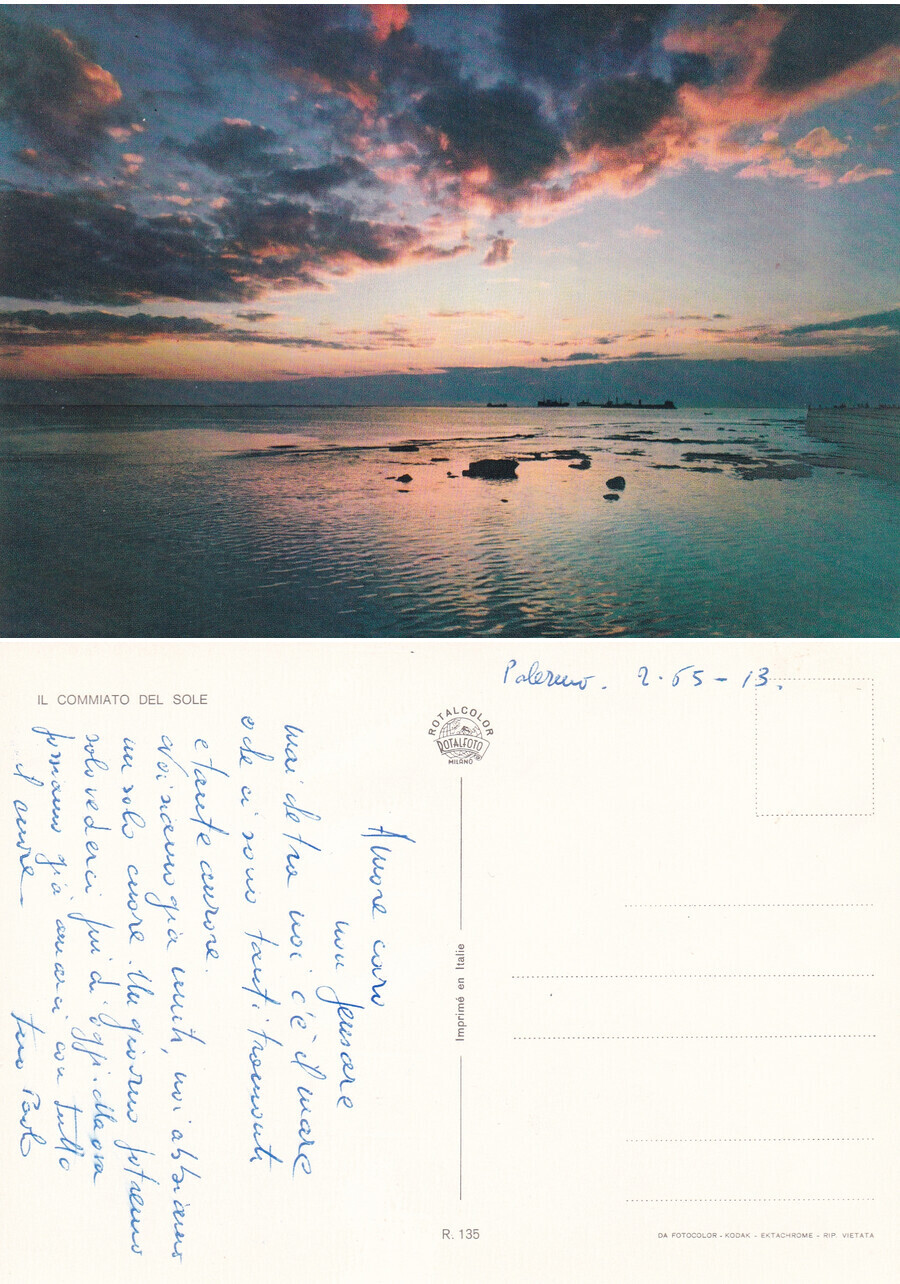 Palermo. 2.65-13.
IL COMMIATO DEL SOLE
ROTALCOLOR
ROTALFOTO
MILANO
Amore caro
non pensare
mai che tra noi c'è il mare
o che ci sono tanti tramonti
e tante aurore.
Noi siamo già uniti, noi abbiamo
un solo cuore. Un giorno potremo
solo vederci più di oggi. Ma ora
possiamo già amarci con tutto
il cuore-
tuo Paolo
Imprimé en Italie
R. 135
DA FOTOCOLOR - KODAK - EKTACHROME - RIP. VIETATA